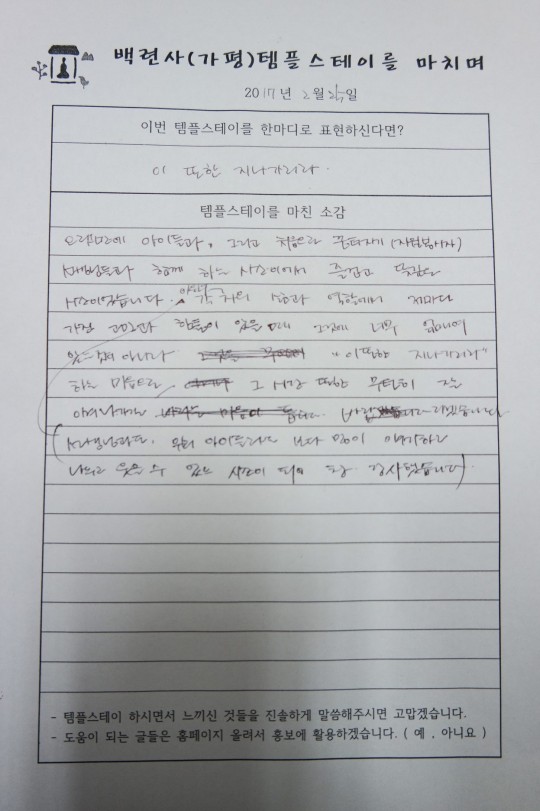 백련사(가평)템플스테이를 마치며
2017년 2월 25일
이번 템플스테이를 한마디로 표현하신다면?
이 또한 지나가리라.
템플스테이를 마친 소감
오랜만에 아이들과, 그리고 처음으로 꿈터지기 (자원봉사자)
선생님들과 함께 하는 시간이어서 즐겁고
시간이었습니다. 각자의 삶과 역할에서 저마다
가진 고민과 힘듦이 있을 때 그것에 너무 얽매여
있는 것이 아니라 "이또한 지나가리라"
하는 마음으로 그 시간 또한 무탈히
선생님들과도, 우리 아이들과도 보다 많이 이야기하고
나누고 웃을 수 있는 시간이 되어 참 감사했습니다.
- 템플스테이 하시면서 느끼신 것들을 진솔하게 말씀해주시면 고맙겠습니다.
- 도움이 되는 글들은 홈페이지 올려서 홍보에 활용하겠습니다. ( 예 , 아니요 )